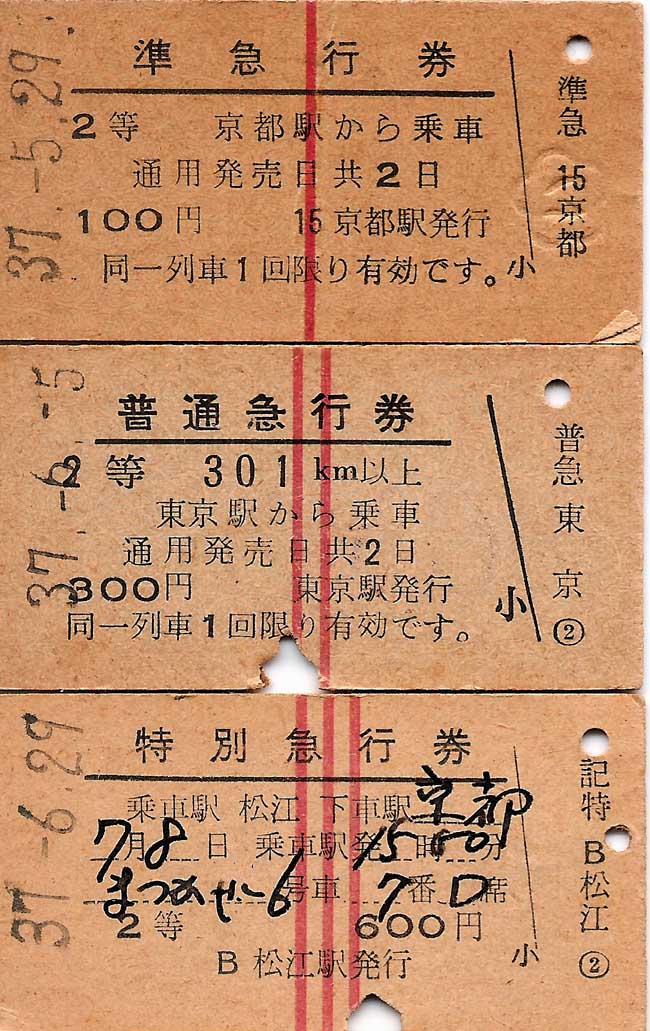 37.-5.29.
準急行券
2等 京都駅から乗車
通用発売日共2日
100円 15 京都駅発行
同一列車1回限り有効です。
小
準急 15 京都
37.-6.-5
普通急行券
2等 301km以上
東京駅から乗車
通用発売日共2日
300円 東京駅発行
同一列車1回限り有効です。
小
普急東京②
37.-6.29
特別急行券
乗車駅 松江 下車駅 京都
7月8日 乗車駅発15時00分
まつかぜ 6号車 7番D席
2等 600円
B 松江駅発行
小
記特 B松江②